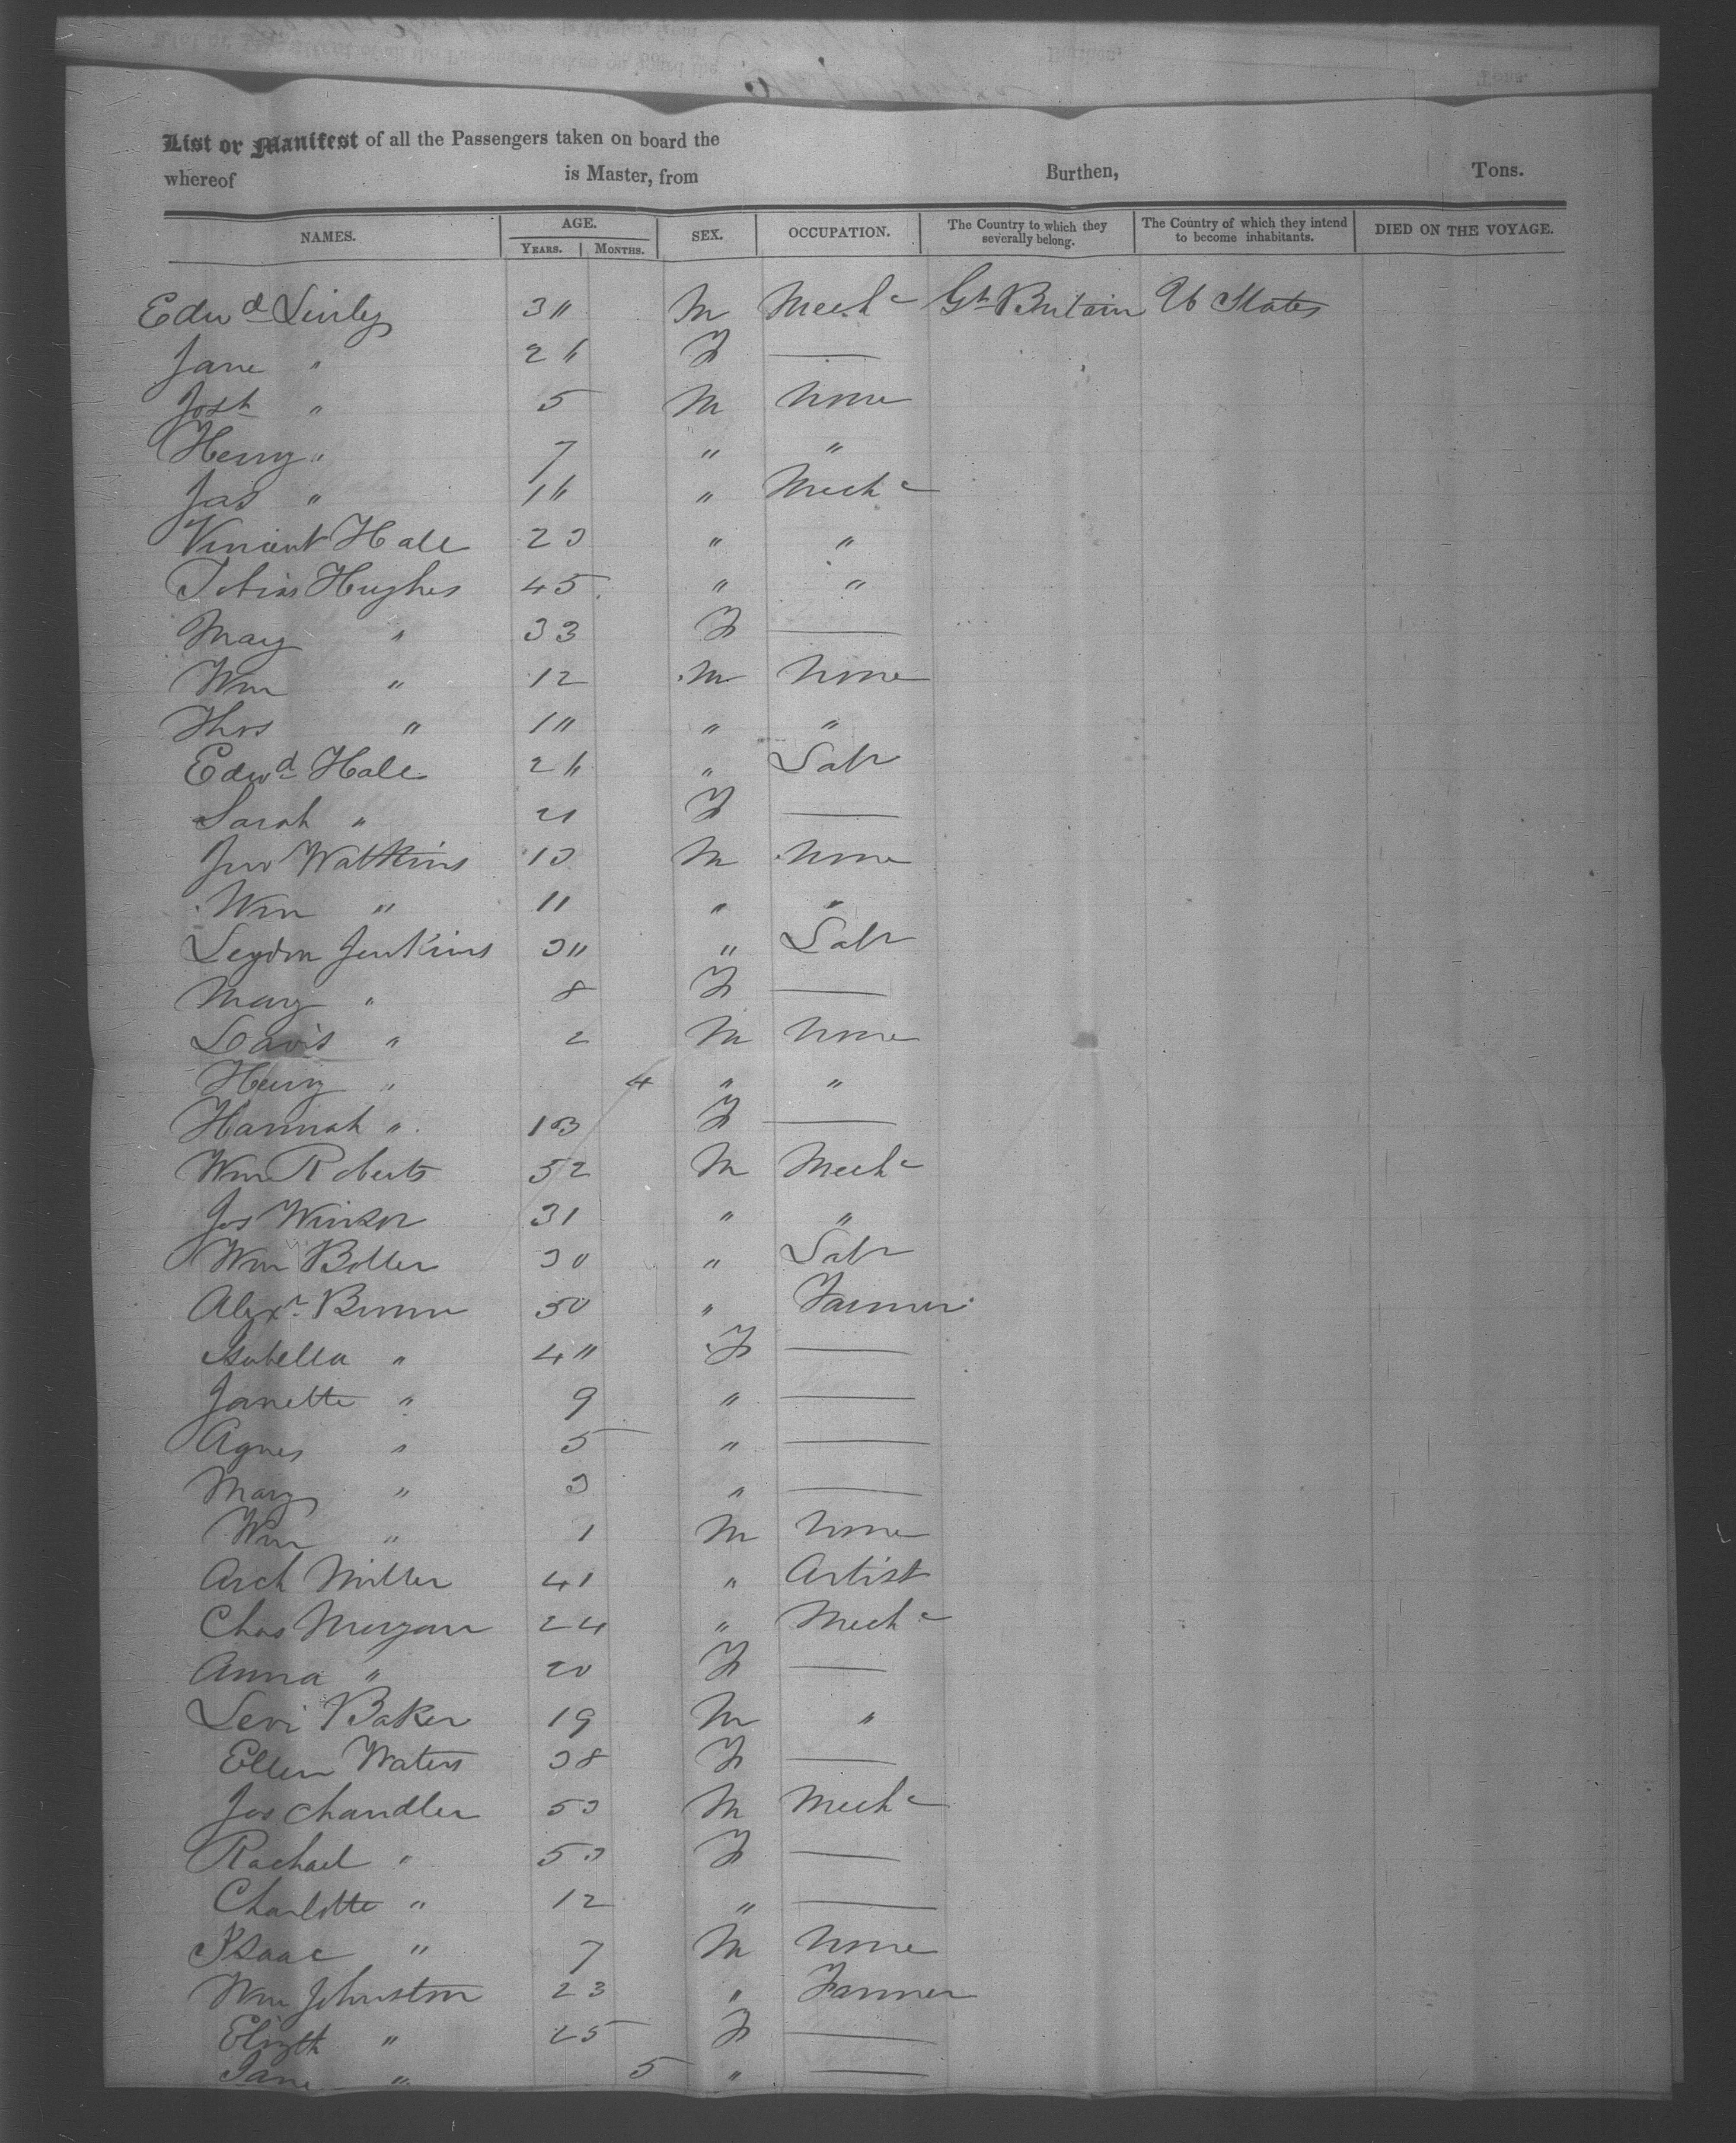 List or Manifest of all the Passengers taken on board the
whereof is Master, from Burthen, Tons.
NAMES. AGE. YEARS. MONTHS. SEX. OCCUPATION. The Country to which they severally belong. The Country of which they intend to become inhabitants. DIED ON THE VOYAGE.
Edwd Linley 3" M Mechc Gt Britain U States
Jane " 26 F —
Josh " 5 M None
Henry " 7 " "
Jas " 16 " Mechc
Vincent Hall 23 " "
Tobias Hughes 45 " "
Mary " 33 F —
Wm " 12 M None
Thos " 1" " "
Edwd Hall 26 " Labr
Sarah " 21 F —
Jno Watkins 13 M None
Wm " 11 " "
Leydon Jenkins 3" " Labr
Mary " 8 F —
Davis " 2 M None
Henry " 4 " "
Hannah " 13 F —
Wm Roberts 52 M Mechc
Jos Winsor 31 " "
Wm Boller 30 " Labr
Alexr Brown 50 " Farmer
Isabella " 4" F —
Janette " 9 " —
Agnes " 5 " —
Mary " 3 " —
Wm " 1 M None
Arch Miller 41 " Artist
Chas Morgan 24 " Mechc
Anna " 20 F —
Levi Baker 19 M "
Ellen Waters 38 F —
Jos Chandler 53 M Mechc
Rachael " 53 F —
Charlotte " 12 " —
Isaac " 7 M None
Wm Johnston 23 " Farmer
Elizth " 25 F —
Jane " 5 " —